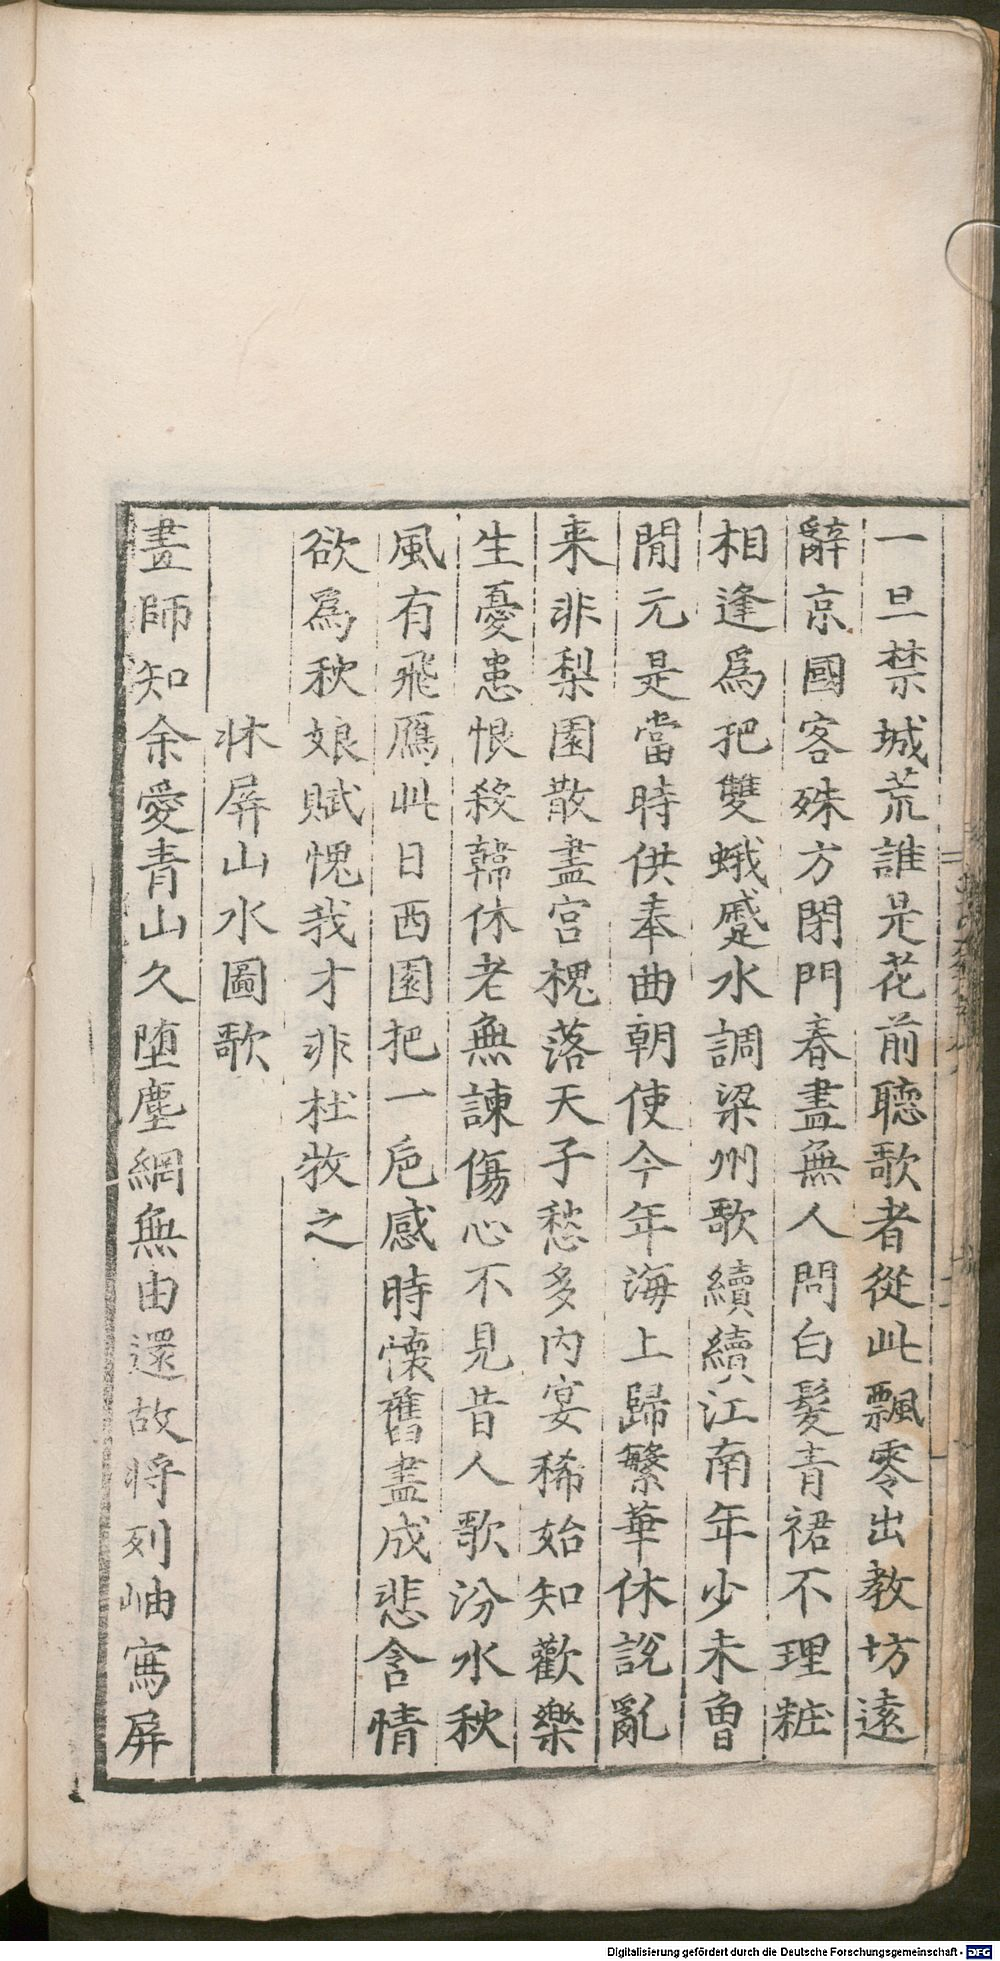 一旦禁城荒誰是花前聽歌者從此飄零出教坊遠
辭京國客殊方閉門春盡無人問白髮青裙不理粧
相逢爲把雙蛾蹙水調梁州歌續續江南年少未曾
聞元是當時供奉曲朝使今年海上歸繁華休說亂
来非梨園散盡宮槐落天子愁多内宴稀始知歡樂
生憂患恨殺韓休老無諫傷心不見昔人歌汾水秋
風有飛鴈此日西園把一巵感時懷舊盡成悲含情
欲爲秋娘賦愧我才非杜牧之
牀屏山水圖歌
畫師知余愛青山久堕塵網無由還故將列岫寫屏
Digitalisierung gefördert durch die Deutsche Forschungsgemeinschaft - DFG